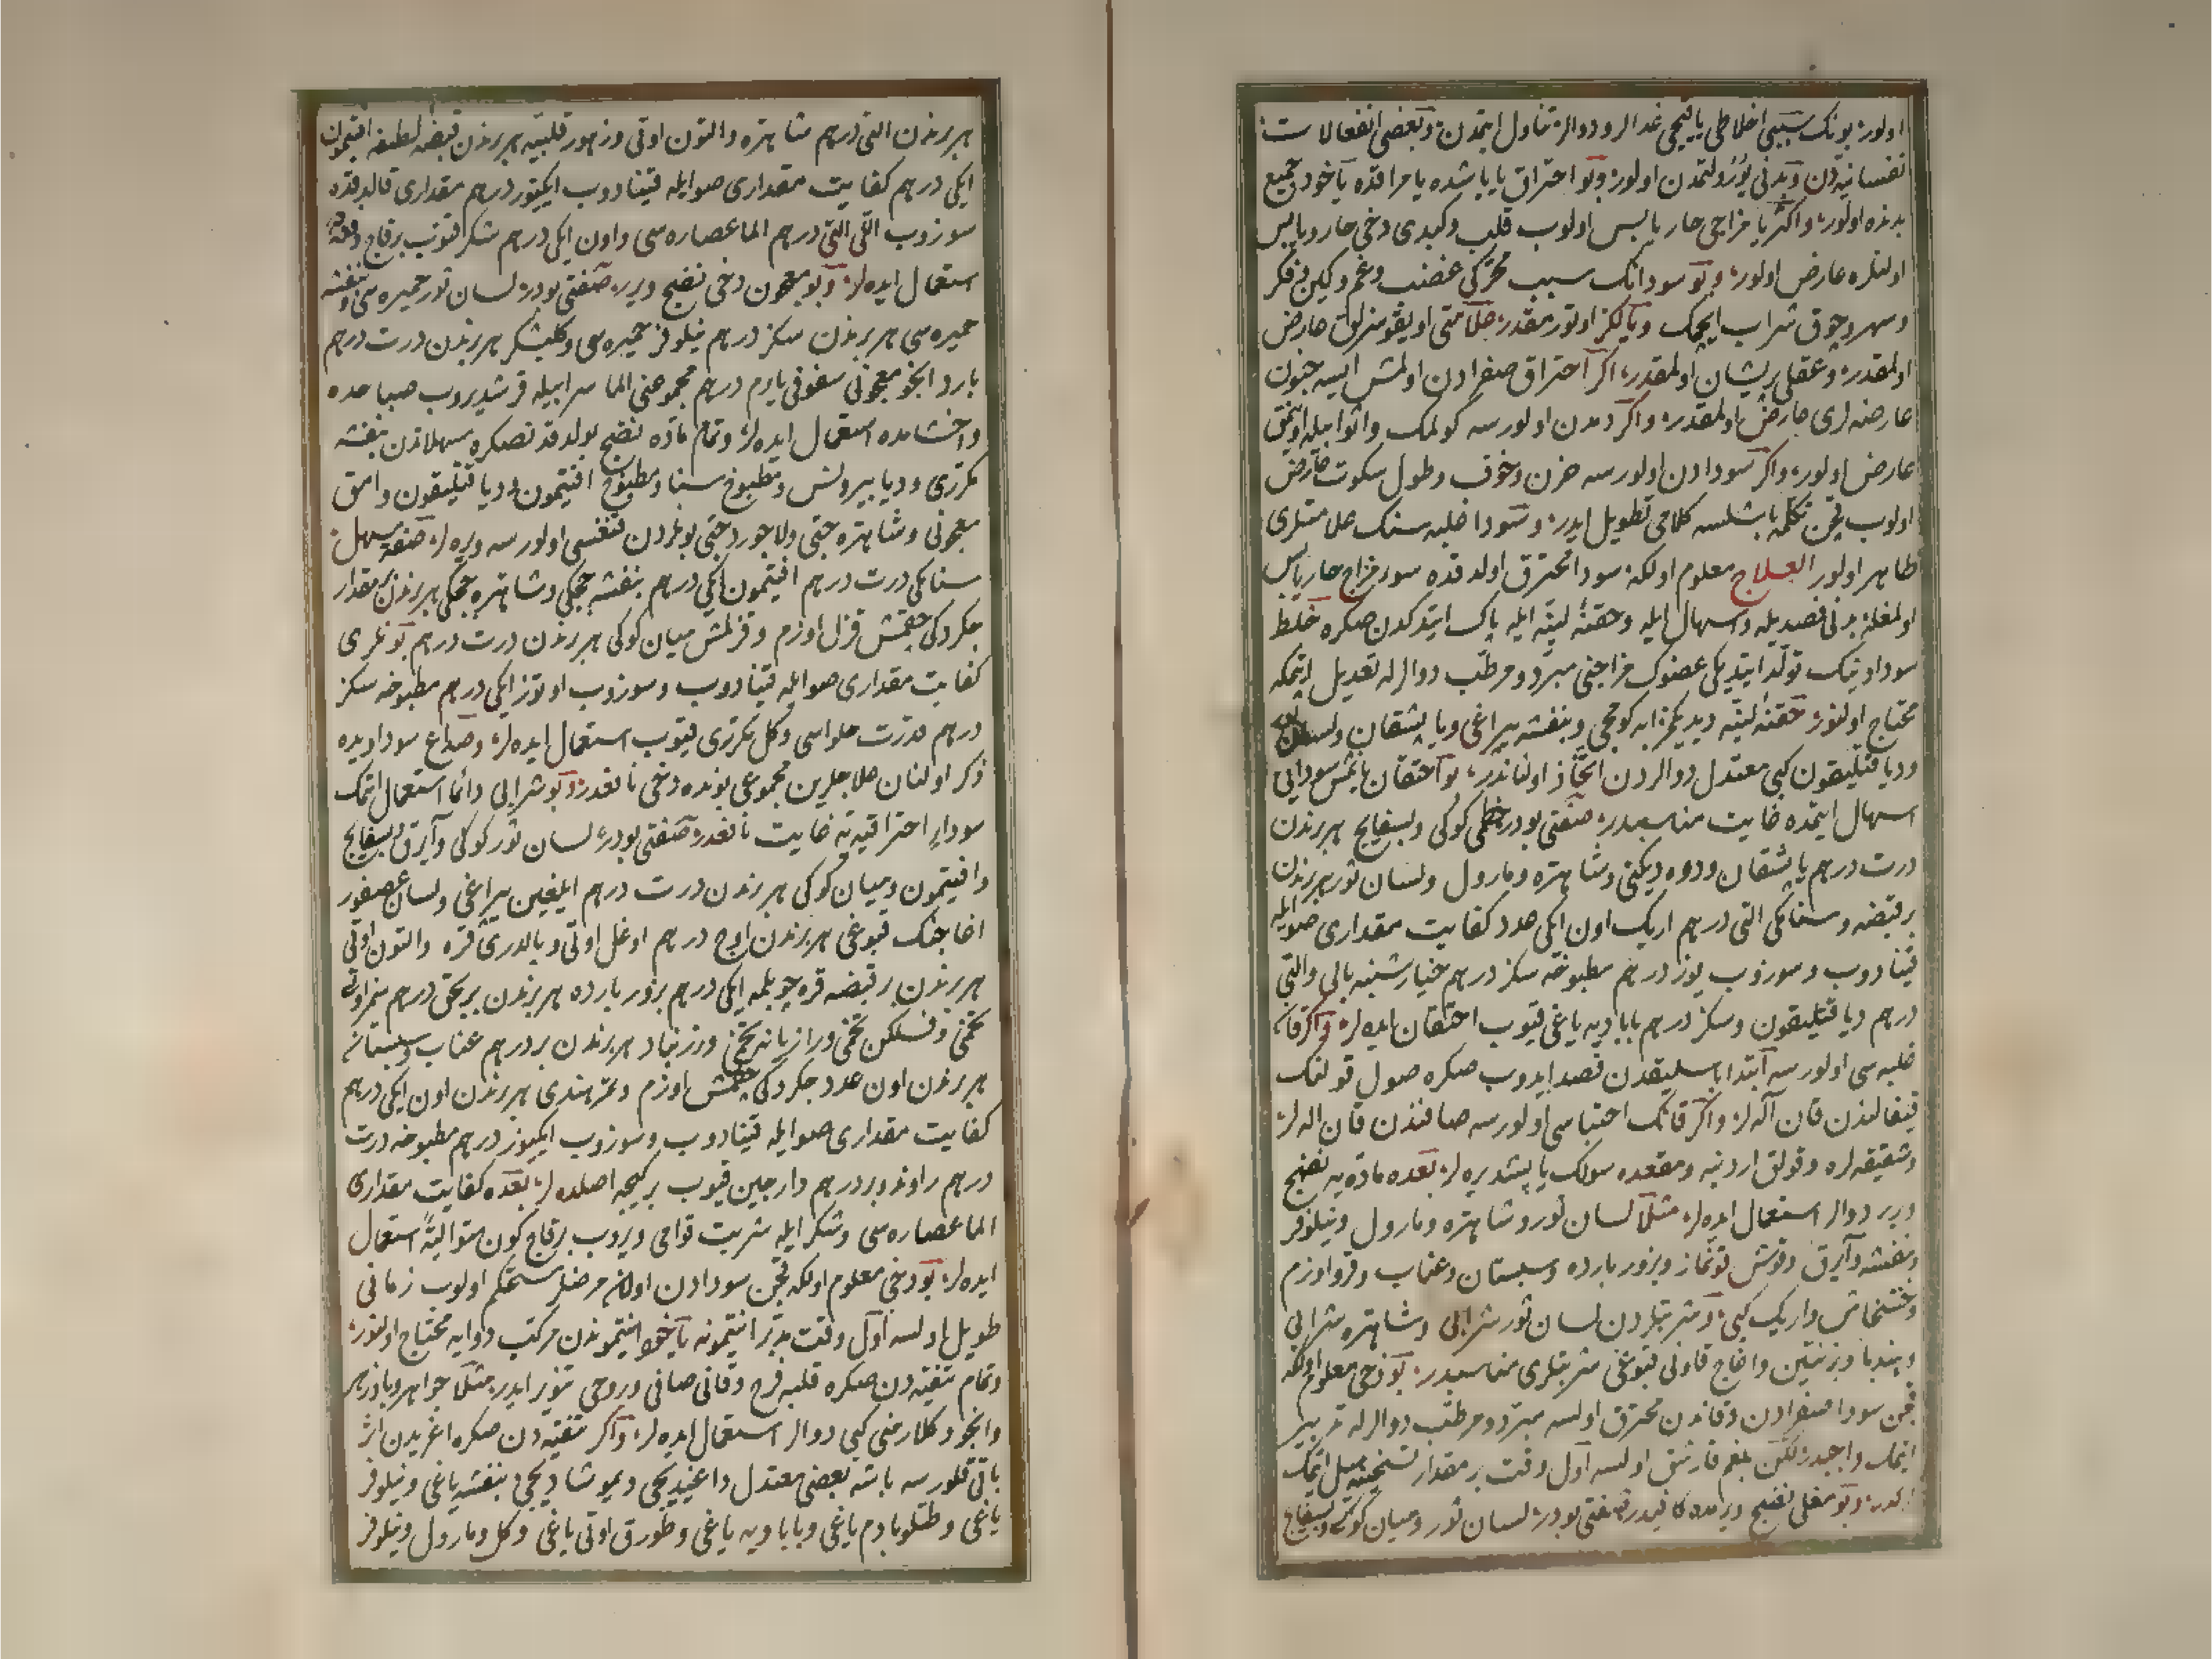 اولور بونك سببى اخلاطى ياقيجى غدالر و دوالر تناول ايتمدن و بعضى انفعالات
نفسانيه دن و بدنى يورولتمدن اولور و بو احتراق يا باشده يا مراقده ياخود جميع
بدنده اولور و اكثريا مزاجى حار يابس اولوب قلب و كبدى دخى حار و يابس
اولنلره عارض اولور و بو سودانك سبب محركى غضب و غم و كين و فكر
و سهر و چوق شراب ايچمك و يالكز اوتورمقدر علامتى اويقوسزلق عارض
اولمقدر و عقلى پريشان اولمقدر اكر احتراق صفرادن اولمش ايسه جنون
عارضه لرى عارض اولمقدر و اكر دمدن اولورسه كولمك و
عارض اولور و اكر سودادن اولورسه حزن و خوف و طول سكوت عارض
اولوب قچن تكلمه باشلسه كلامى تطويل ايدر و سودا غلبه سنك علامتلرى
ظاهر اولور العلاج معلوم اولكه سودا محترق اولدقده سوء مزاج حار يابس
اولمغله بدنى فصديله و اسهال ايله و حقنهٔ لينه ايله پاك ايتدكدن صكره خلط
سوداوينك تولد ايتديكى عضوك مزاجنى مبرد و مرطب دوالرله تعديل ايتمكه
محتاج اولنور حقنهٔ لينه ديديكمز ابه كومجى و بنفشه يپراغى و پاپشقان و لسان ثور
و ديا قتليقون كبى معتدل دوالردن اتخاذ اولناندر بو احتقان ياغمش سودايى
اسهال ايتمده غايت مناسبدر صنعتى بودر خطمى كوكى و بسفايج هر برندن
درت درهم پاپشقان و دوه ديكنى و شاهتره و مارول و لسان ثور هر برندن
بر قبضه و سنامكى التى درهم اريك اون ايكى عدد كفايت مقدارى صو ايله
قيناد‌وب و سوزوب يوز درهم مطبوخه سكز درهم خيارشنبه بالى و التى
درهم ديا قتليقون و سكز درهم بابا ديه ياغى قيوب احتقان ايده لر و اكر قانك
غلبه سى اولورسه ابتدا باسليقدن فصد ايدوب صكره صول قولنك
قيفالندن قان آله لر و اكر قانك احتباسى اولورسه صافندن قان اله لر
و شقيقه لره و قولق اردينه و مقعده سولك ياپشديره لر بعده ماده يه نضج
ويرر دوالر استعمال ايده لر مثلا لسان ثور و شاهتره و مارول و نيلوفر
و بنفشه و آيرق و قوش قونماز و بزور بارده و سبستان و عناب و قرو اوزم
و خشخاش و اريك كبى و شربتلردن لسان ثور شرابى و شاهتره شرابى
و هندبا و بزنتين و اغاج قاونى قبوغى شربتلرى مناسبدر بو دخى معلوم اولكه
قچن سودا صفرادن و قاندن محترق اولسه مبرد و مرطب دوالرله تدبير
ايتمك واجبدر لكن بلغم قارشق اولسه اول وقت بر مقدار تسخينه ميل ايتمك
كركدر و بو مغلى نضج ويرمده كافيدر صنعتى بودر لسان ثور و ميان كوكى و بسفايج
هر برندن التى درهم شاهتره و التون اوتى و زهور قلبيه هر برندن قبضهٔ لطيفه افتيمون
ايكى درهم كفايت مقدارى صو ايله قيناد‌وب ايكيوز درهم مقدارى قالدقده
سوزوب التى درهم الما عصاره سى و اون ايكى درهم شكر قويوب برقاج دفعه ده
استعمال ايده لر و بو معجون دخى نضج ويرر صنعتى بودر لسان ثور خميره سى و بنفشه
خميره سى هر برندن سكز درهم نيلوفر خميره سى و كلبشكر هر برندن درت درهم
بارد انجو معجونى سفوفى يارم درهم مجموعنى الما شرابيله قرشديروب صباحده
و اخشامده استعمال ايده لر و تمام ماده نضج بولدقدنصكره مسهلاتدن بنفشه
مكررى و ديا بيرونس و مطبوخ سنا و مطبوخ افتيمون و ديا قتليقون و امق
معجونى و شاهتره حبى و لاجورد حبى بونلردن قنغسى اولورسه ويره لر صفت مسهل
سنامكى درت درهم افتيمون ايكى درهم بنفشه چچكى و شاهتره چچكى هر برندن بر مقدار
چكردكى چقمش قزل اوزم و قزلمش ميان كوكى هر برندن درت درهم بونلرى
كفايت مقدارى صو ايله قيناد‌وب و سوزوب اوتوز ايكى درهم مطبوخه سكز
درهم قدرت حلواسى و كل مكررى قيوب استعمال ايده لر و صداع سوداويده
ذكر اولنان علاجلرين مجموعى بونده دخى نافعدر و بو شرابى دائما استعمال ايتمك
سوداء احتراقيه يه غايت نافعدر صنعتى بودر لسان ثور كوكى و آيرق و بسفايج
و افتيمون و ميان كوكى هر برندن درت درهم ايلغين يپراغى و لسان عصفور
اغاجنك قبوغى هر برندن اوچ درهم اوغل اوتى و بالدرى قره و التون اوتى
هر برندن بر قبضه قره چوپلمه ايكى درهم بزور بارده هر برندن بر بچق درهم
تخمى و فسلكن تخمى و رازيانه تخمى و زرنباد هر برندن بر درهم عناب و سبستان
هر برندن اون عدد چكردكى چقمش اوزم و تمر هندى هر برندن اون ايكى درهم
كفايت مقدارى صو ايله قيناد‌وب و سوزوب ايكيوز درهم مطبوخه درت
درهم راوند و بر درهم دارچين قيوب بر كيجه اصلده لر بعده كفايت مقدارى
الما عصاره سى و شكر ايله شربت قوامى ويروب برقاج كون متوالية استعمال
ايده لر بو دخى معلوم اولكه قچن سودادن اولان مرضلر مستحكم اولوب زمانى
طويل اولسه اول وقت مدبر افتيمونه ياخود افتيموندن مركب دوايه محتاج اولنور
و تمام تنقيه دن صكره قلبه فرح و قانى صافى و روحى تنوير ايدر مثلا جواهر و بادزهر
و انجو و كلارمنى كبى دوالر استعمال ايده لر و اكر تنقيه دن صكره اغريدن اثر
باقى قلورسه باشه بعضى معتدل داغيديجى و يموشاديجى و بنفشه ياغى و نيلوفر
ياغى و طتلو بادم ياغى و بابا ديه ياغى و طورق اوتى ياغى و كل و مارول و نيلوفر